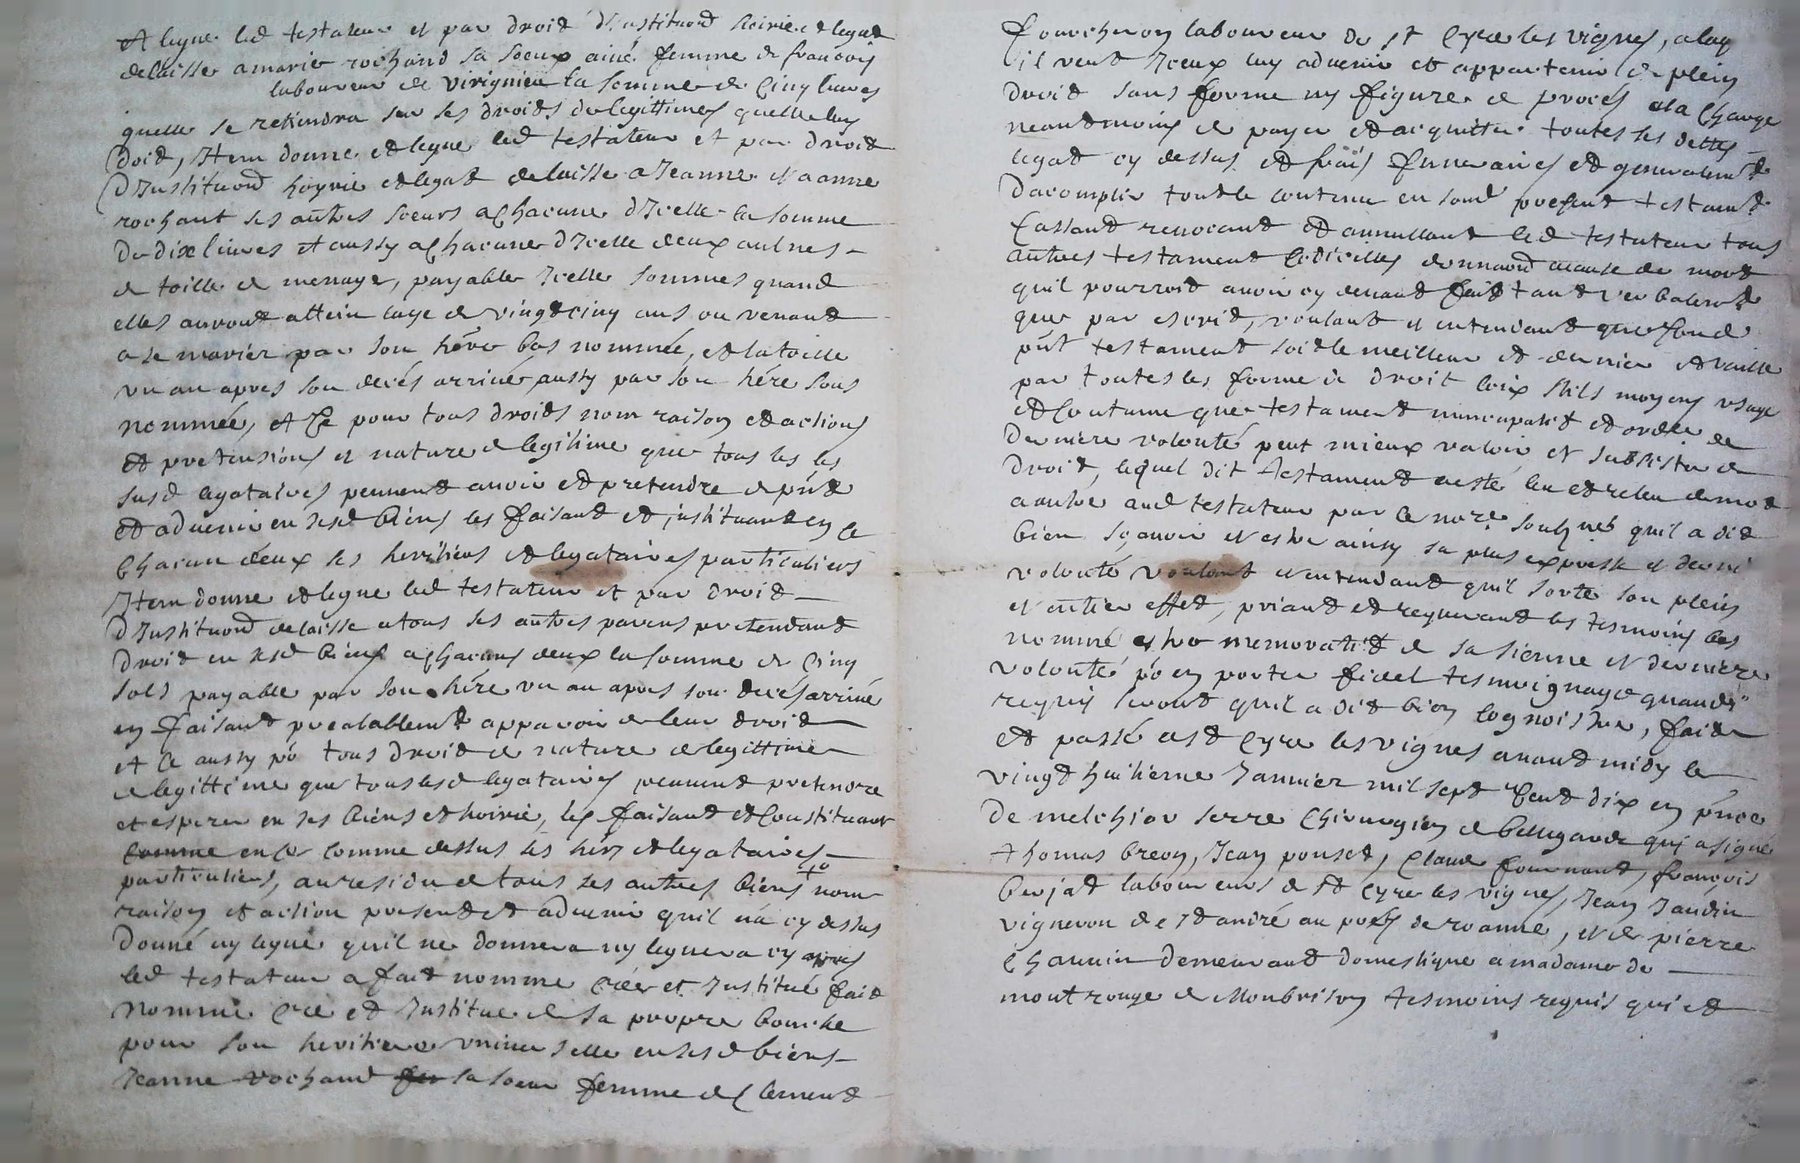 et legue led testateur et par droit d'institu͠ond hoirie et legat
delaisse a marie rochand sa soeur ainé femme de françois
laboureur de virignieu la somme de cinq livres
quelle se retiendra sur ses droits de legittimes quelle luy
doit, Item donne et legue led testateur et par droit
d'Institu͠ond hoyrie et legat delaisse a Jeanne et a anne
rochant ses autres soeurs a chacune d'Icelle la somme
de dix livres et aussy a chacune d'Icelle deux aulnes
de toille de menage, payable Icelle sommes quand
elles auront attein lage de vingt cinq ans ou venant
a se marier par son hére bas nommée, et la toille
un an apres son decés arrivé aussy par son hére sous
nommée, et Ce pour tous droits nom raison et actions
et pretensions et nature de legitime que tous les les
susd legataires peuvent avoir et pretendre de p͠nt
et advenir en sesd biens les faisant et jnstituant en ce
chacun deux ses heritiers et legataires particuliers
Item donne et legue led testateur et par droit
d'Institu͠ond delaisse a tous ses autres parens pretendant
droit en sesd biens a chacuns deux la somme de cinq
sols payable par son hére un an apres son decés arrivé
en faisant prealablem͠t apparoir de leur droit
et Ce aussy p͠o tous droit de nature de legittime
de legittime que tous lesd legataires peuvent pretendre
et esperer en ses biens et hoirie, les faisant et Constituant
comme en ce comme dessus ses hers et legataires
particuliers, au residu de tous ses autres biens nom
raison et action present et advenir quil n'a cy dessus
donné ny legué quil ne donnera ny leguera cy apres
led testateur a fait nomme créé et Institué fait
nomme cre et Institue de sa propre bouche
pour son heritiere universelle en sesd biens
Jeanne rochand sa soeur femme de Clement
fourcheron laboureur de st Cyre les vignes, a laq
l il veut Iceux luy advenir et appartenir de plein
droit sans forme ny figure de procés a la charge
neantmoins de payer et acquitter toutes les dettes
legat cy dessus et frais funeraires et generalem͠t
dacomplir tout le contenu en sond present testam͠t
Cassant revocant et annullant led testateur tous
autres testament Codicilles donna͠ond acause de mort
quil pourroit avoir cy devant fait tant verbalem͠t
que par escrit, voulant et entendant que sond
p͠nt testament soit le meilleur et dernier et vaille
par toutes les forme de droit loix stils moyens usage
et Coutume que testament nuncupatif et ordre de
derniere volonté peut mieux valoir et subsister de
droit, lequel dit testament a esté leu et releu de mot
a autre aud testateur par le no͠re soubz͠né quil a dit
bien sçavoir et estre ainsy sa plus expresse et derni
volonté voulant et entendant quil sorte son plein
et entier effet, priant et requerant les tesmoins bas
nommé estre memoratif de sa sienne et derniere
volonté p͠o en porter fidel tesmoignage quand
requis seront quil a dit bien Cognoistre, fait
et passé a st Cyre les vignes avant midy le
vingt huitieme Janvier mil sept Cent dix en p͠nce
de melchior serre chirurgien de bellegarde qui a signé
thomas breon, Jean ponset, Claude fournand, françois
berjat laboureurs de st Cyre les vignes, Jean Jandin
vigneron de st andré au près de roanne, et de pierre
chauvin demeurant domestique a madame de
montrouge de Monbrison tesmoins requis qui et